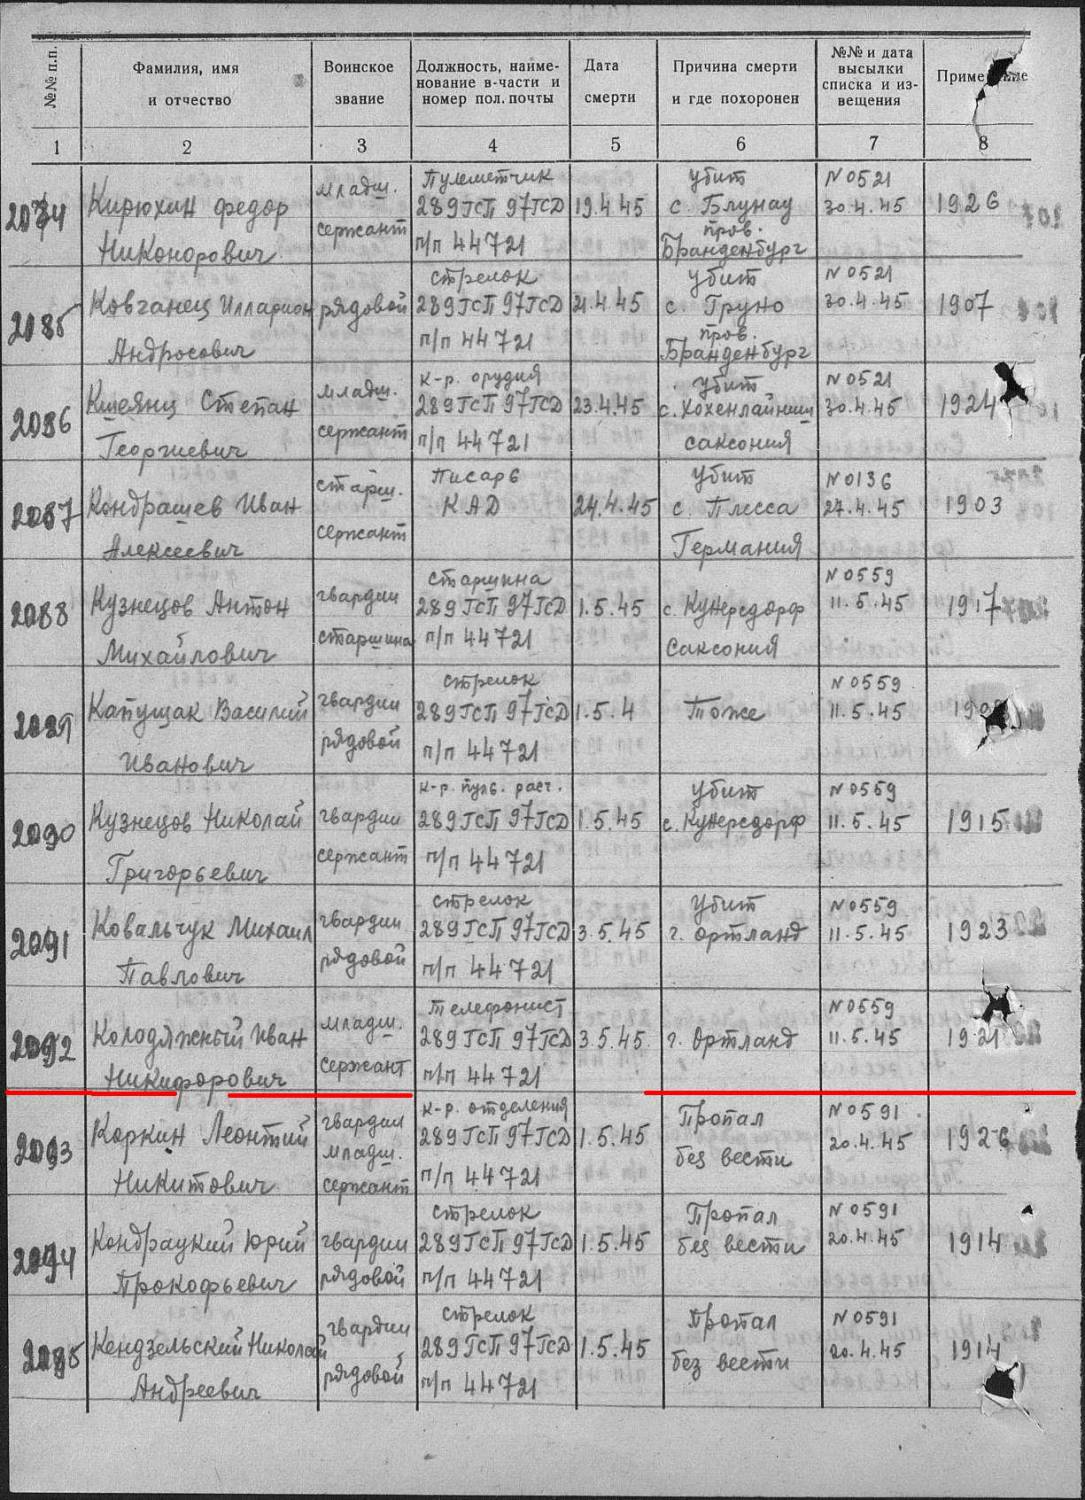 №№ п.п.
Фамилия, имя
и отчество
Воинское
звание
Должность, наиме-
нование в-части и
номер пол. почты
Дата
смерти
Причина смерти
и где похоронен
№№ и дата
высылки
списка и из-
вещения
1 2 3 4 5 6 7 8
младш. Пулеметчик убит N 0521
Кирюхин Федор 289 ГсП 97 ГсД 19.4.45 с. Блунау 30.4.45 1926
Никонорович сержант п/п 44721 пров. Бранденбург
стрелок убит N 0521
Ковганец Илларион рядовой 289 ГсП 97 ГсД 21.4.45 с. Груно 30.4.45 1907
Андросович п/п 44721 пров. Бранденбург
2086 младш. к-р. орудия убит N 0521
Кшеянц Степан 289 ГсП 97 ГсД 23.4.45 с. Хохенлайпиш 30.4.45 1924
Георгиевич сержант п/п 44721 саксония
2087 старш. Писарь убит N 0136
Кондрашев Иван КАД 24.4.45 с. Плесса 27.4.45 1903
Алексеевич сержант Германия
2088 гвардии старшина N 0559
Кузнецов Антон 289 ГсП 97 ГсД 1.5.45 с. Кунерсдорф 11.5.45 1917
Михайлович старшина п/п 44721 саксония
2089 гвардии стрелок N 0559
Капущак Василий 289 ГсП 97 ГсД 1.5.4 Тоже 11.5.45
Иванович рядовой п/п 44721
2090 к-р. пулв. расч. убит N 0559
Кузнецов Николай гвардии 289 ГсП 97 ГсД 1.5.45 с. Кунерсдорф 11.5.45 1915
Григорьевич сержант п/п 44721
2091 стрелок убит N 0559
Ковальчук Михаил гвардии 289 ГсП 97 ГсД 3.5.45 г. Ортланд 11.5.45 1923
Павлович рядовой п/п 44721
2092 младш. телефонист N 0559
Колодяжный Иван 289 ГсП 97 ГсД 3.5.45 г. Ортланд 11.5.45 1921
Никифорович сержант п/п 44721
2093 гвардии к-р. отделения Пропал N 0591
Коркин Леонтий младш. 289 ГсП 97 ГсД 1.5.45 без вести 20.4.45 1926
Никитович сержант п/п 44721
2094 стрелок Пропал N 0591
Кондрацкий Юрий гвардии 289 ГсП 97 ГсД 1.5.45 без вести 20.4.45 1914
Прокофьевич рядовой п/п 44721
гвардии стрелок Пропал N 0591
Кендзельский Николай 289 ГсП 97 ГсД 1.5.45 без вести 20.4.45 1914
Андреевич рядовой п/п 44721